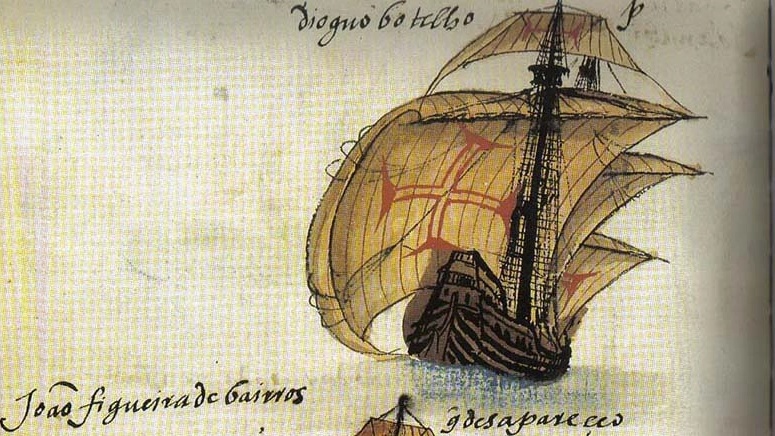 dioguo botelho
p
João figueira de bairros
q̃ desapareçeo